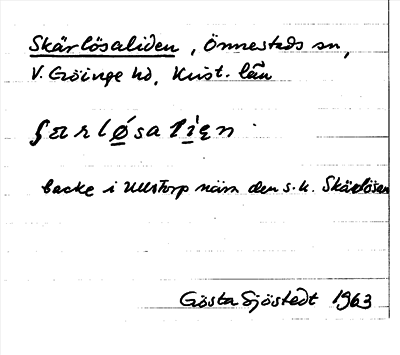 Skärlösaliden, Önnestads sn,
V. Göinge hd, Krist. län
ʃærløsaliɛn
backe i Ullstorp näm den s.k. Skärlösen
Gösta Sjöstedt 1963